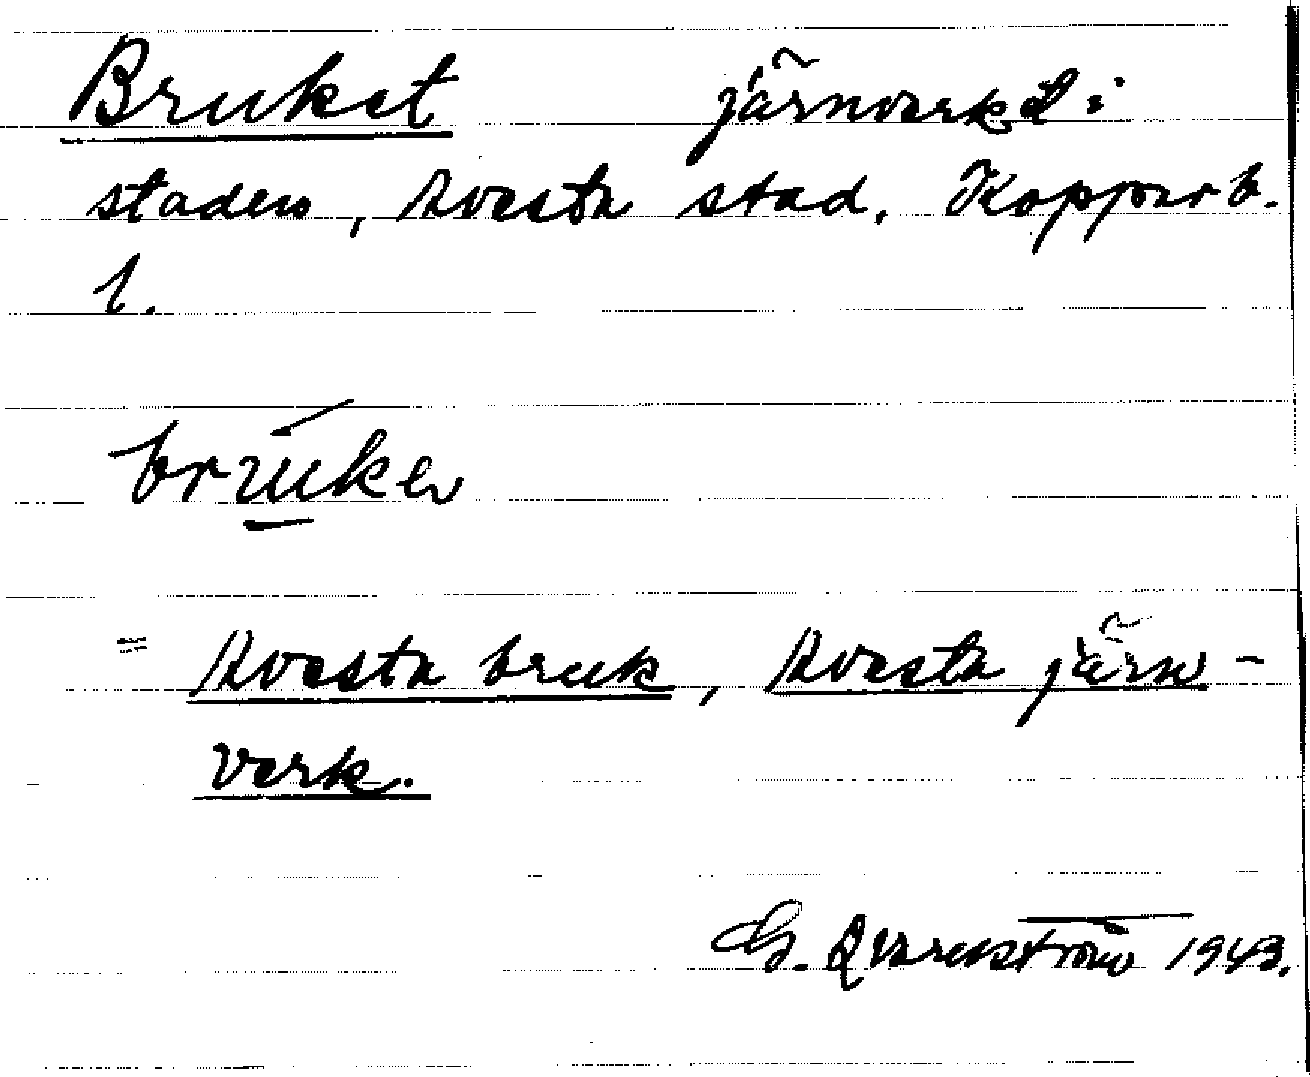 Bruket järnverk i
staden, Avesta stad. Kopparb.
l.
brúken
= Avesta bruk, Avesta järn-
verk.
G. Qvarnström 1943.